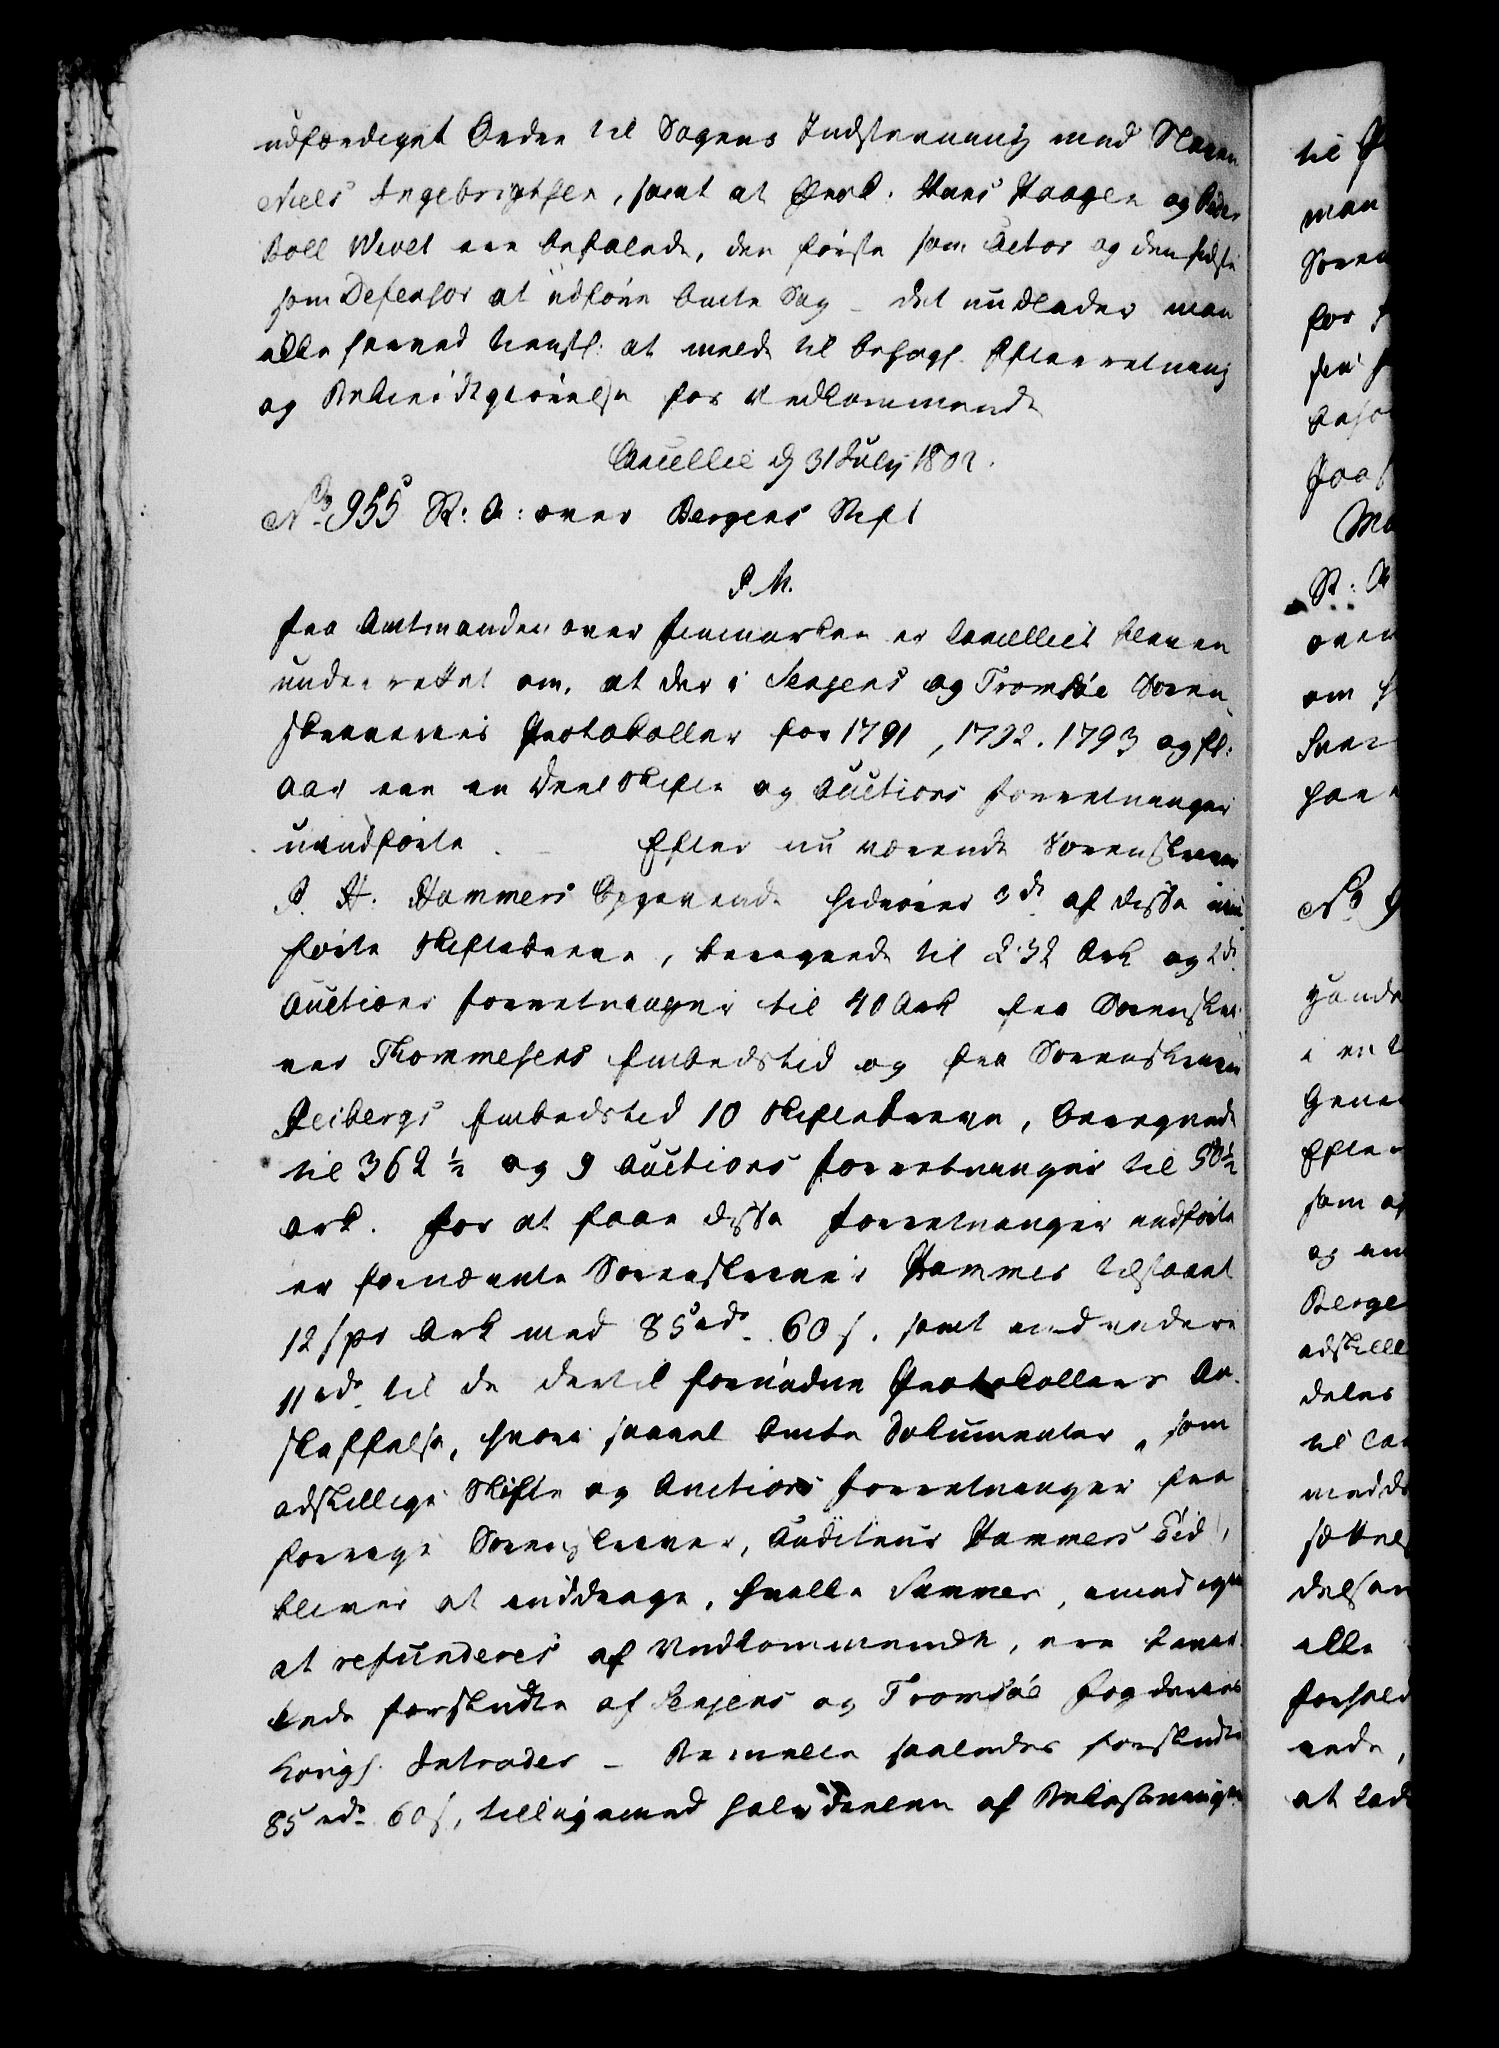 udfærdiget Ordre til Sagens Indstevning mod Slaven
Niels Ingebrigtsen, samt at Proc. Hans Haagen og Peder
Boll Wivet ere befalede, den første som Actor og den sidste
som Defensor at udføre bemte Sag – det undlader man
ikke herved tienstl: at melde til behagl. Efterretning
og Bekiendtgiørelse for Vedkommende
Cancelliet d 31 July 1802.
No 955 St: A: over Bergens Stift
P. M.
Fra Amtmanden over Finmarken er Cancelliet bleven
underrettet om, at der i Senjens og Tromsøe Soren
skriveries Protokoller for 1791, 1792. 1793 og fl:
Aar ere en Deel Skifte og Auctions Forretninger
uindførte. Efter nu værende Sorenskriver
P. H. Hammers Opgivende hidrører 3de af disse uind
førte Skiftebreve, beregnede til 232 Ark og 2de
Auctions Forretninger til 40 Ark fra Sorenskri
ver Thommesens Embedstid og fra Sorenskriver
Heibergs Embedstid 10 Skiftebreve, beregnede
til 362 ½ og 9 Auctions Forretninger til 50½
Ark. For at faae disse Forretninger indførte
er fornævnte Sorenskriver Hammer tilstaaet
12 s pr Ark med 85 rd. 60 s. samt end videre
11 rd. til de dertil fornødne Protokollers An
skaffelse, hvori saavel bemte Dokumenter, som
adskillige Skifte og Auctions Forretninger fra
forrige Sorenskriver, Auditeur Hammers Tid,
bliver at inddrage, hvilke Summer, imod igien
at refunderes af Vedkommende, ere bever
kede forskudte af Senjens og Tromsøe Fogderies
Kongl. Intrader – Bemelte saaledes forskudte
85 rd. 60 s, tilligemed halve Deelen af Bekostningen